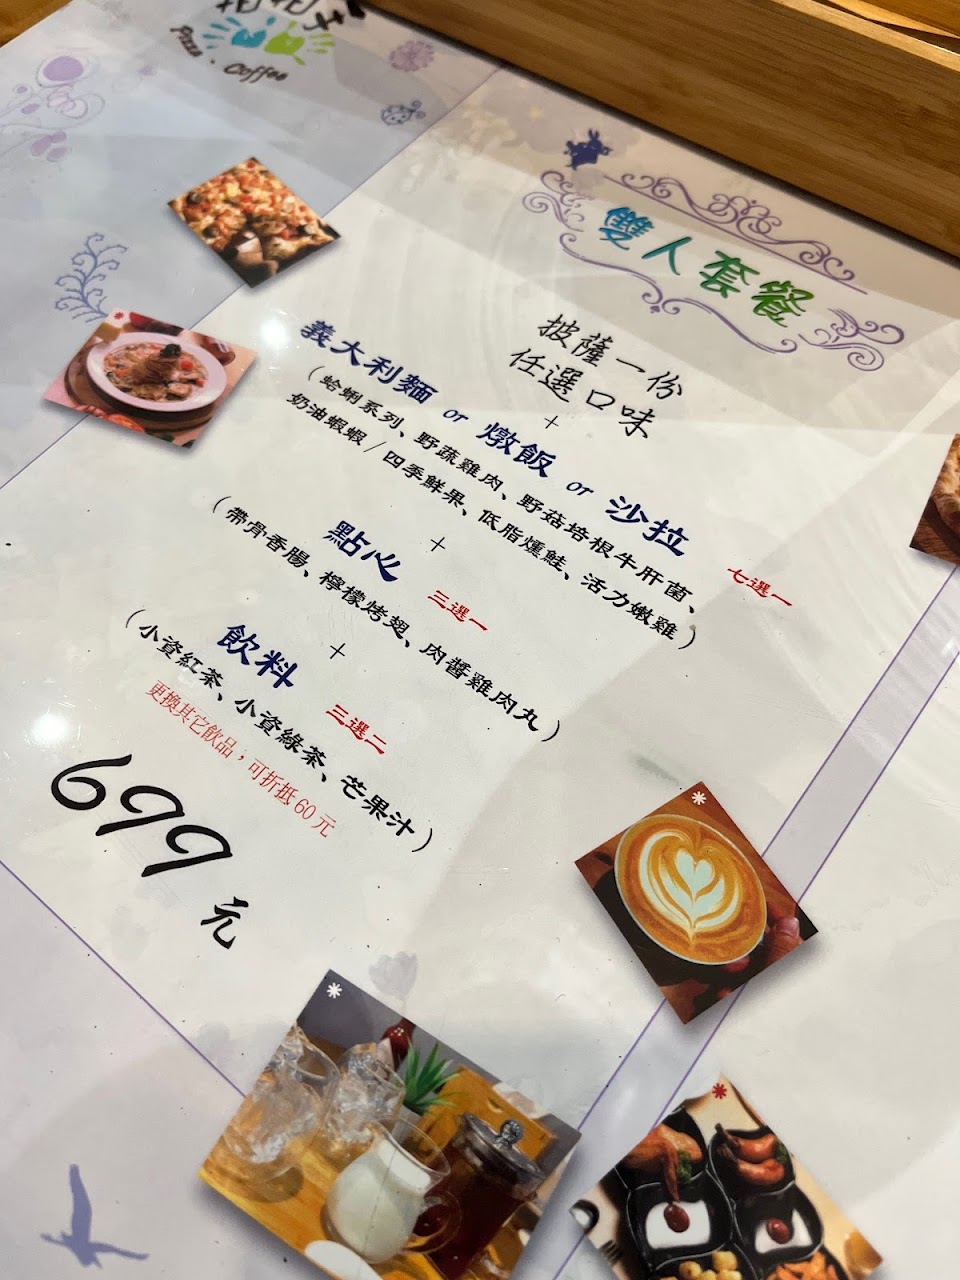 Pizza · Coffee
雙人套餐
披薩一份
任選口味
+
義大利麵 or 燉飯 or 沙拉 七選一
(蛤蜊系列、野蔬雞肉、野菇培根牛肝菌、
奶油蝦蝦/四季鮮果、低脂燻鮭、活力嫩雞)
+
點心 三選一
(帶骨香腸、檸檬烤翅、肉醬雞肉丸)
+
飲料 三選二
(小資紅茶、小資綠茶、芒果汁)
更換其它飲品，可折抵60元
699元